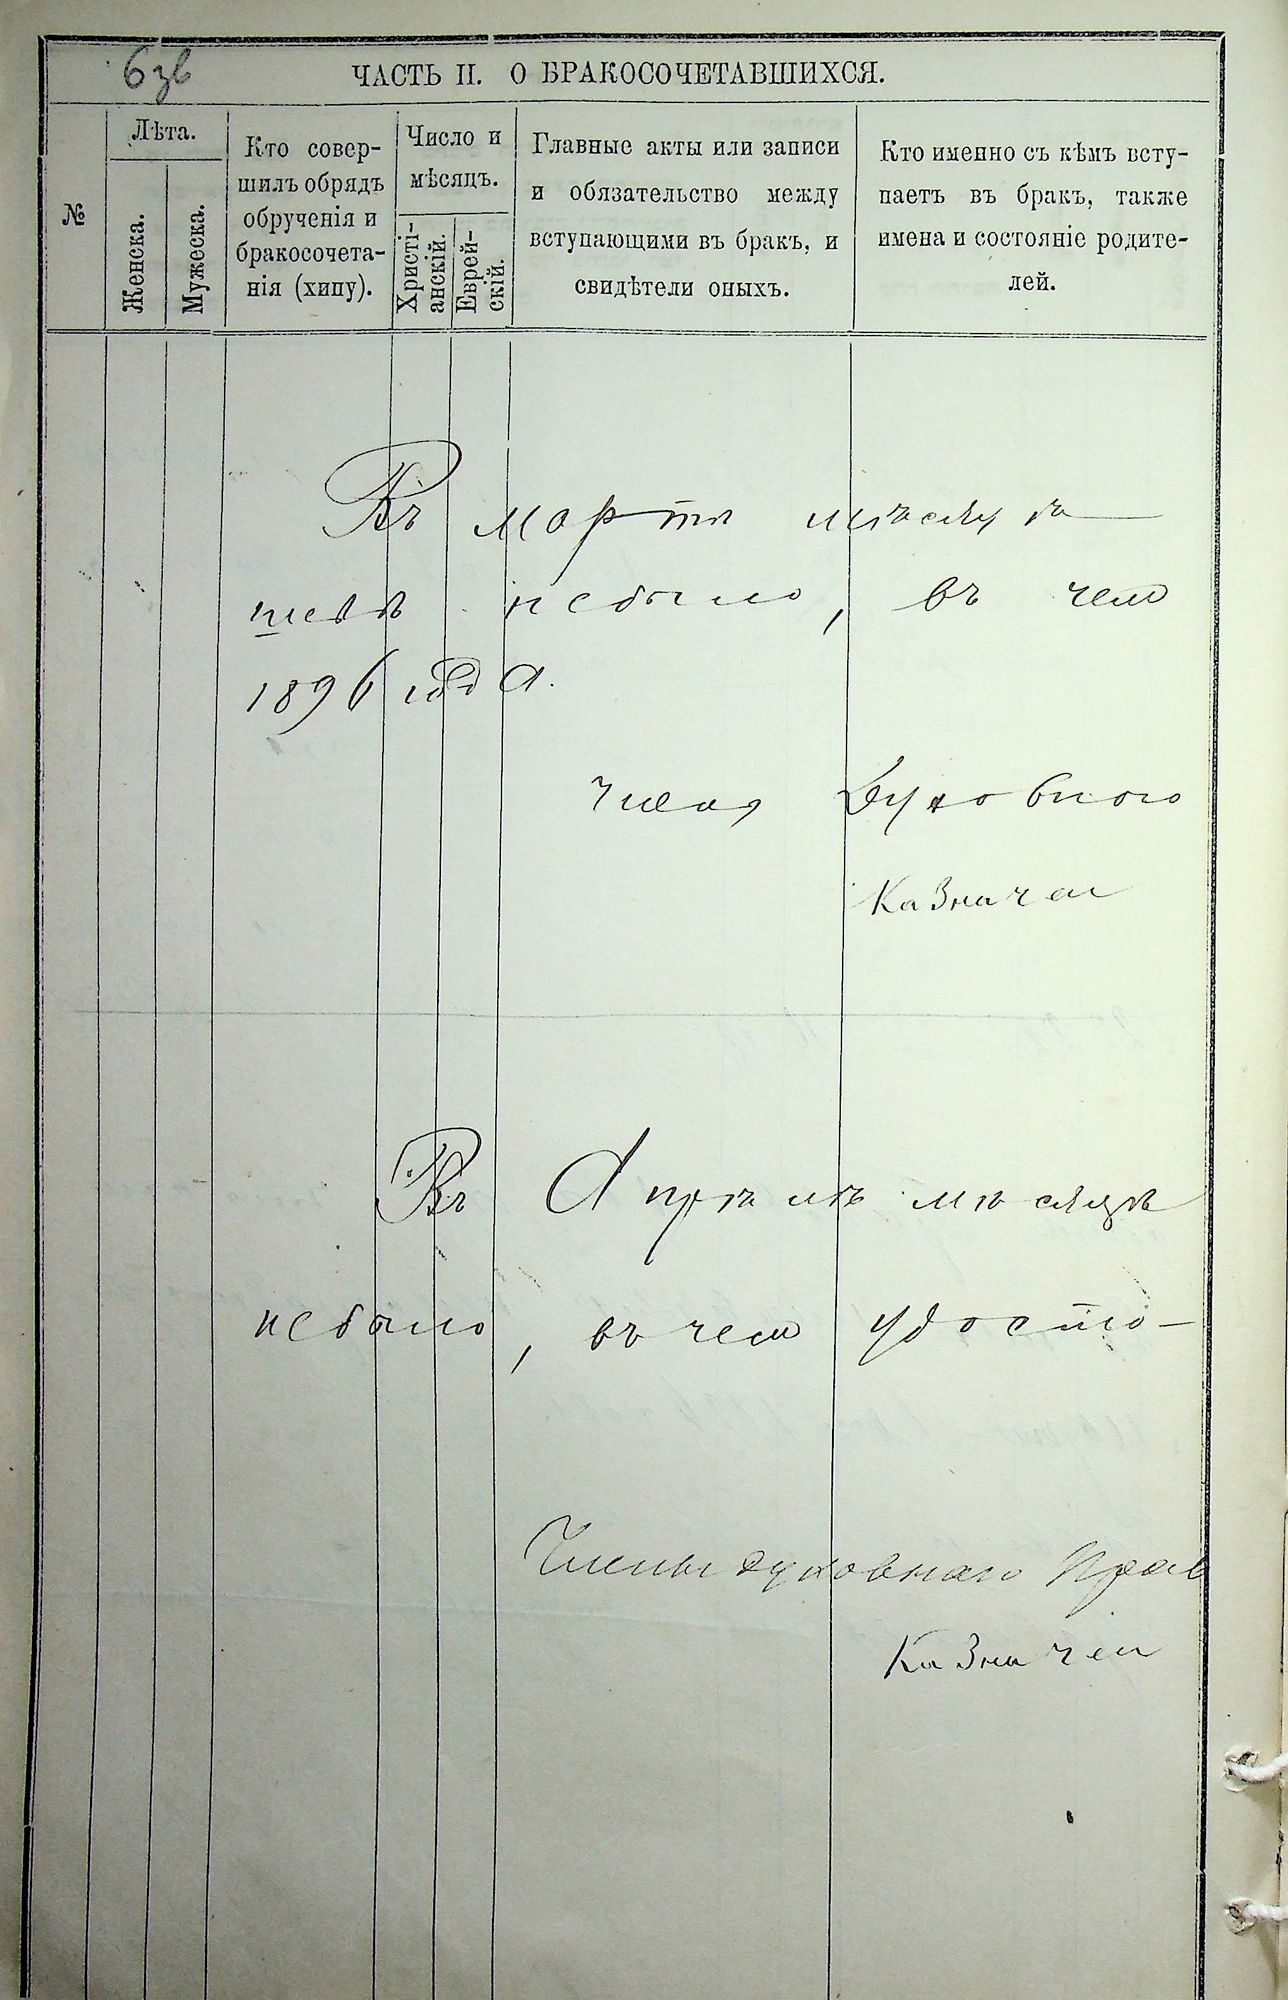 6зв
ЧАСТЬ II. О БРАКОСОЧЕТАВШИХСЯ.
№
Лѣта.
Женска.
Мужеска.
Кто совер-
шилъ обрядъ
обрученія и
бракосочета-
нія (хипу).
Число и
мѣсяцъ.
Христі-
анскій.
Еврей-
скій.
Главные акты или записи
и обязательство между
вступающими въ бракъ, и
свидѣтели оныхъ.
Кто именно съ кѣмъ всту-
паетъ въ бракъ, также
имена и состояніе родите-
лей.
Въ мартѣ мѣсяцѣ
небыло, въ чем
1896 года.
Члены Духовного
Казначеи
Въ Апрѣлѣ мѣсяцѣ
небыло, въ чем удосто-
Члены духовнаго Прав
Казначеи